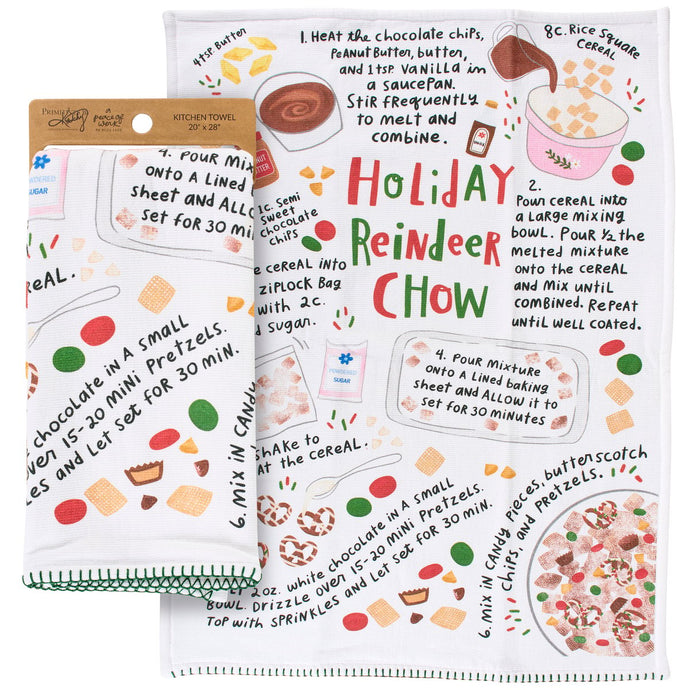 PRIMITIVES
Kathy
a peace of work
KITCHEN TOWEL
20" x 28"
POWDERED
SUGAR
4. POUR MIXTURE
ONTO A LINED
sheet and Allow
set for 30 min
CEREAL.
chocolate in A Small
over 15-20 Mini Pretzels.
and Let Set for 30 min.
6. Mix in CANDY
4tsp. Butter
1. Heat the chocolate chips,
Peanut Butter, butter,
and 1tsp. Vanilla in
a saucepan.
Stir frequently
to melt and
combine.
8c. Rice Square
Cereal
BUTTER
1c. Semi
Sweet
chocolate
chips
Holiday
Reindeer
Chow
2.
Pour cereal into
a large mixing
bowl. Pour ½ the
melted mixture
onto the cereal
and mix until
combined. Repeat
until well coated.
cereal into
Ziplock Bag
with 2c.
Sugar.
POWDERED
SUGAR
4. Pour Mixture
onto A Lined baking
sheet and Allow it to
set for 30 minutes
Shake to
the cereal.
2oz. white chocolate in A Small
Bowl. Drizzle over 15-20 Mini Pretzels.
Top with Sprinkles and Let Set for 30 min.
6. Mix in Candy pieces, butterscotch
chips, and pretzels.